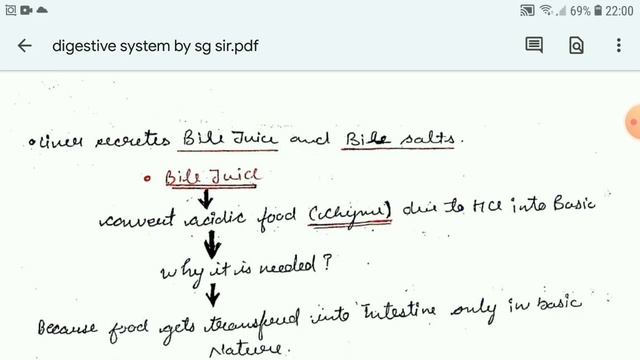 69% 22:00
digestive system by sg sir.pdf
• Liver secretes Bile Juice and Bile salts.
• Bile Juice
convert acidic food (chyme) due to HCl into Basic
Why it is needed?
Because food gets transfered into Intestine only in basic
Nature.